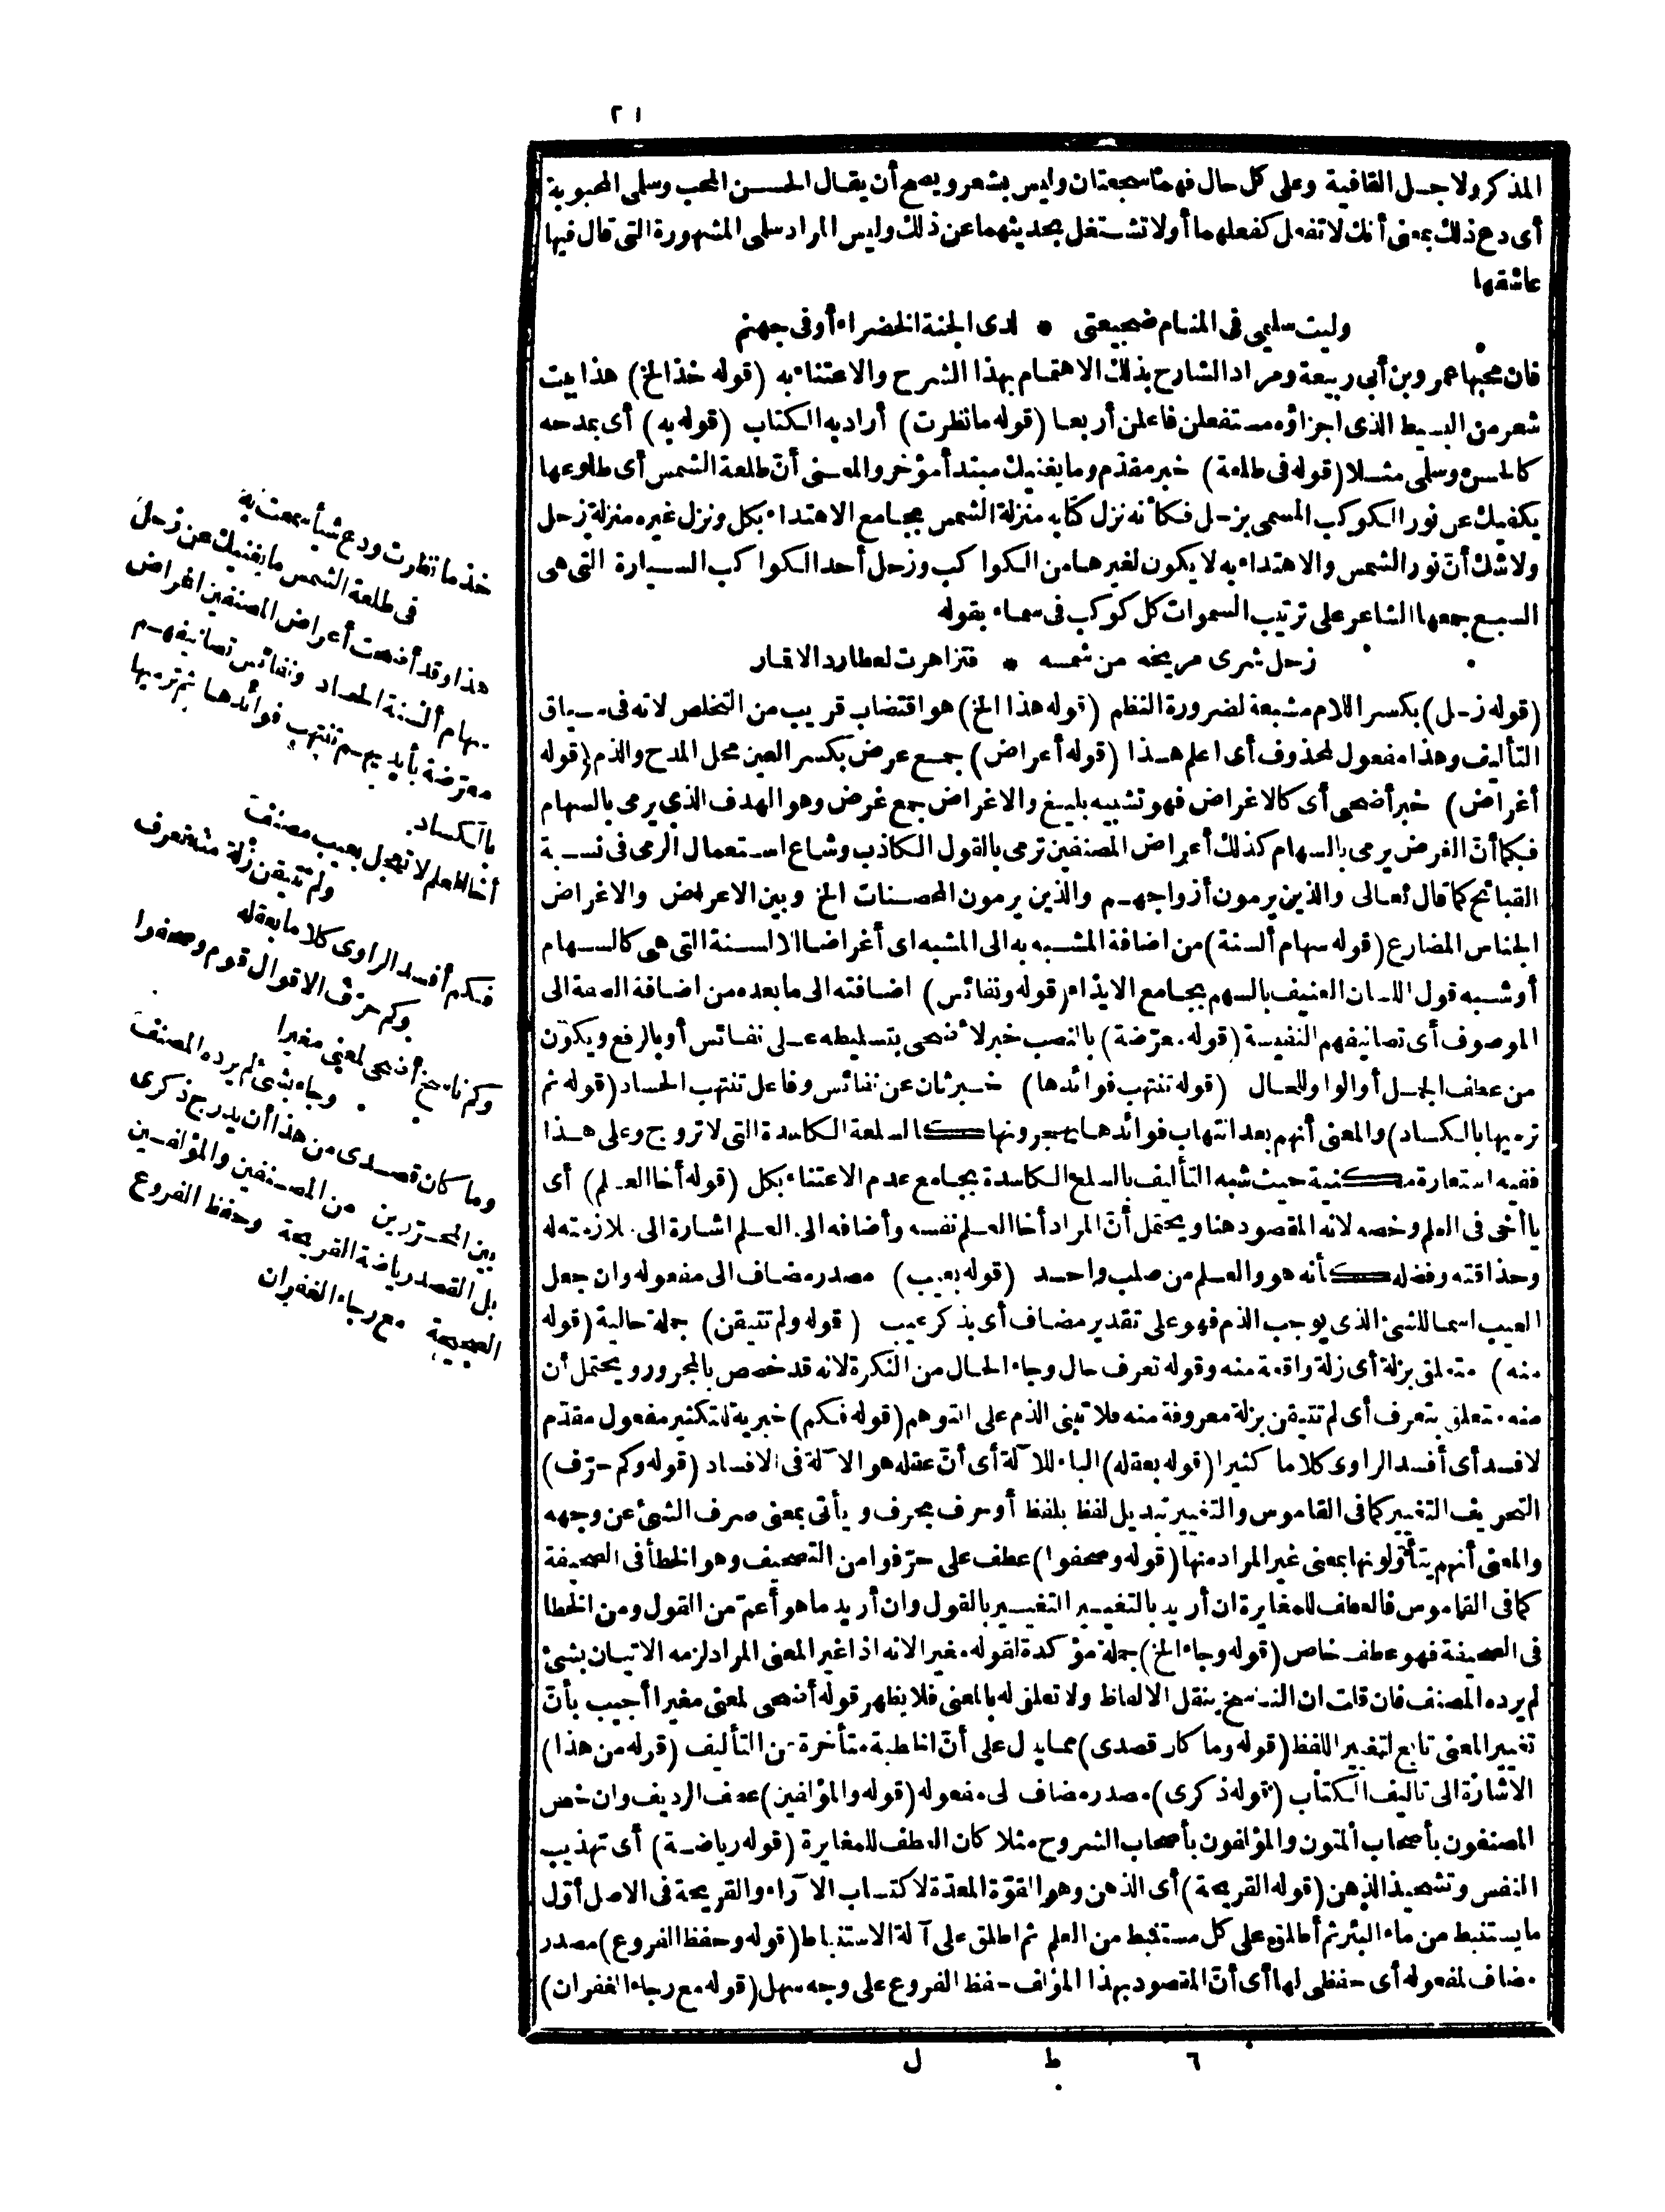 ٢١
المذكر ولاجل القافية وعلى كل حال فهما سجعتان وليس بشعر ويصح أن يقال الحسن المحب وسلمى المحبوبة
أى دع ذلك بمعنى أنك لا تفعل كفعلهما أو لا تشتغل بحديثهما عن ذلك وليس المراد سلمى المشهورة التى قال فيها
عاشقها
وليت سليمى فى المنام ضجيعتى * لدى الجنة الخضراء أوفى جهنم
فان محبها عمرو بن أبى ربيعة ومراد الشارح بذلك الاهتمام بهذا الشرح والاعتناء به (قوله خذ الخ) هذا بيت
شعر من البسيط الذى اجزاؤه مستفعلن فاعلن أربعا (قوله ما نظرت) أراد به الكتاب (قوله به) أى بمدحه
كالحسن وسلمى مثلا (قوله فى طلعة) خبر مقدّم وما يغنيك مبتدأ مؤخر والمعنى أنّ طلعة الشمس أى طلوعها
يكفيك عن نور الكوكب المسمى بزحل فكأنه نزل كتابه منزلة الشمس بجامع الاهتداء بكل ونزل غيره منزلة زحل
ولا شك أنّ نور الشمس والاهتداء به لا يكون لغيرها من الكواكب وزحل أحد الكواكب السيارة التى هى
السبع جمعها الشاعر على ترتيب السموات كل كوكب فى سماء بقوله
زحل شرى مريخه من شمسه * فتزاهرت لعطارد الاقمار
(قوله زحل) بكسر اللام مشبعة لضرورة النظم (قوله هذا الخ) هو اقتضاب قريب من التخلص لانه فى سياق
التأليف وهذا مفعول لمحذوف أى اعلم هذا (قوله أعراض) جمع عرض بكسر العين محل المدح والذم (قوله
أغراض) خبر أضحى أى كالاغراض فهو تشبيه بليغ والاغراض جمع غرض وهو الهدف الذى يرمى بالسهام
فكما أنّ الغرض يرمى بالسهام كذلك أعراض المصنفين ترمى بالقول الكاذب وشاع استعمال الرمى فى نسبة
القبائح كما قال تعالى والذين يرمون أزواجهم والذين يرمون المحصنات الخ وبين الاعراض والاغراض
الجناس المضارع (قوله سهام ألسنة) من اضافة المشبه به الى المشبه اى أغراضا لالسنة التى هى كالسهام
أو شبه قول اللسان العنيف بالسهم بجامع الايذاء (قوله ونفائس) اضافته الى ما بعده من اضافة الصفة الى
الموصوف أى تصانيفهم النفيسة (قوله معرّضة) بالنصب خبر لأضحى بتسليطه على نفائس أو بالرفع ويكون
من عطف الجمل أو الواو للحال (قوله تنتهب فوائدها) خبر ثان عن نفائس وفاعل تنتهب الحساد (قوله ثم
ترميها بالكساد) والمعنى أنهم بعد انتهاب فوائدها يهجرونها كالسلعة الكاسدة التى لا تروج وعلى هذا
ففيه استعارة مكنية حيث شبه التأليف بالسلع الكاسدة بجامع عدم الاعتناء بكل (قوله أخا العلم) أى
يا أخى فى العلم وخصه لانه المقصود هنا ويحتمل أنّ المراد أخا العلم نفسه وأضافه الى العلم اشارة الى ملازمته له
وحذاقته وفضله كأنه هو والعلم من صلب واحد (قوله بعيب) مصدر مضاف الى مفعوله وان جعل
العيب اسما للشئ الذى يوجب الذم فهو على تقدير مضاف أى بذكر عيب (قوله ولم تتيقن) جملة حالية (قوله
منه) متعلق بزلة أى زلة واقعة منه وقوله تعرف حال وجاء الحال من النكرة لانه قد خصص بالمجرور ويحتمل أن
منه متعلق بتعرف أى لم تتيقن بزلة معروفة منه فلا تبنى الذم على التوهم (قوله فكم) خبرية للتكثير مفعول مقدّم
لافسد أى أفسد الراوى كلاما كثيرا (قوله بعقله) الباء للآلة أى أنّ عقله هو الآلة فى الافساد (قوله وكم حرّف)
التحريف التغيير كما فى القاموس والتغيير تبديل لفظ بلفظ أو حرف بحرف ويأتى بمعنى صرف الشئ عن وجهه
والمعنى أنهم يتأوّلونها بمعنى غير المراد منها (قوله وصحفوا) عطف على حرّفوا من التصحيف وهو الخطأ فى الصحيفة
كما فى القاموس فالعطف للمغايرة ان أريد بالتغيير التغيير بالقول وان أريد ما هو أعمّ من القول ومن الخطا
فى الصحيفة فهو عطف خاص (قوله وجاء الخ) جملة مؤكدة لقوله مغيرا لانه اذا غير المعنى المراد لزمه الاتيان بشئ
لم يرده المصنف فان قلت ان الناسخ ينقل الالفاظ ولا تعلق له بالمعنى فلا يظهر قوله أضحى لمعنى مغيرا أجيب بأنّ
تغيير المعنى تابع لتغيير اللفظ (قوله وما كان قصدى) مما يدل على أنّ الخطبة متأخرة عن التأليف (قوله من هذا)
الاشارة الى تاليف الكتاب (قوله ذكرى) مصدر مضاف لى مفعوله (قوله والمؤلفين) عطف الرديف وان خص
المصنفون بأصحاب المتون والمؤلفون بأصحاب الشروح مثلا كان العطف للمغايرة (قوله رياضة) أى تهذيب
النفس وتشحيذ الذهن (قوله القريحة) أى الذهن وهو القوّة المعدّة لاكتساب الآراء والقريحة فى الاصل أوّل
ما يستنبط من ماء البئر ثم أطلق على كل مستنبط من العلم ثم اطلق على آلة الاستنباط (قوله وحفظ الفروع) مصدر
مضاف لمفعوله أى حفظى لها أى أنّ المقصود بهذا المؤلف حفظ الفروع على وجه سهل (قوله مع رجاء الغفران)
خذ ما نظرت ودع شيأ سمعت به
فى طلعة الشمس ما يغنيك عن زحل
هذا وقد أضحت أعراض المصنفين اغراض
سهام ألسنة الحساد ونفائس تصانيفهم
معرّضة بأيديهم تنتهب فوائدها ثم ترميها
بالكساد.
أخا العلم لا تعجل بعيب مصنف
ولم تتيقن زلة منه تعرف
فكم أفسد الراوى كلاما بعقله
وكم حرّف الاقوال قوم وصحفوا
وكم ناسخ أضحى لمعنى مغيرا
وجاء بشئ لم يرده المصنف
وما كان قصدى من هذا أن يدرج ذكرى
بين المحررين من المصنفين والمؤلفين
بل القصد رياضة القريحة وحفظ الفروع
الصحيحة مع رجاء الغفران
٦ ط ل